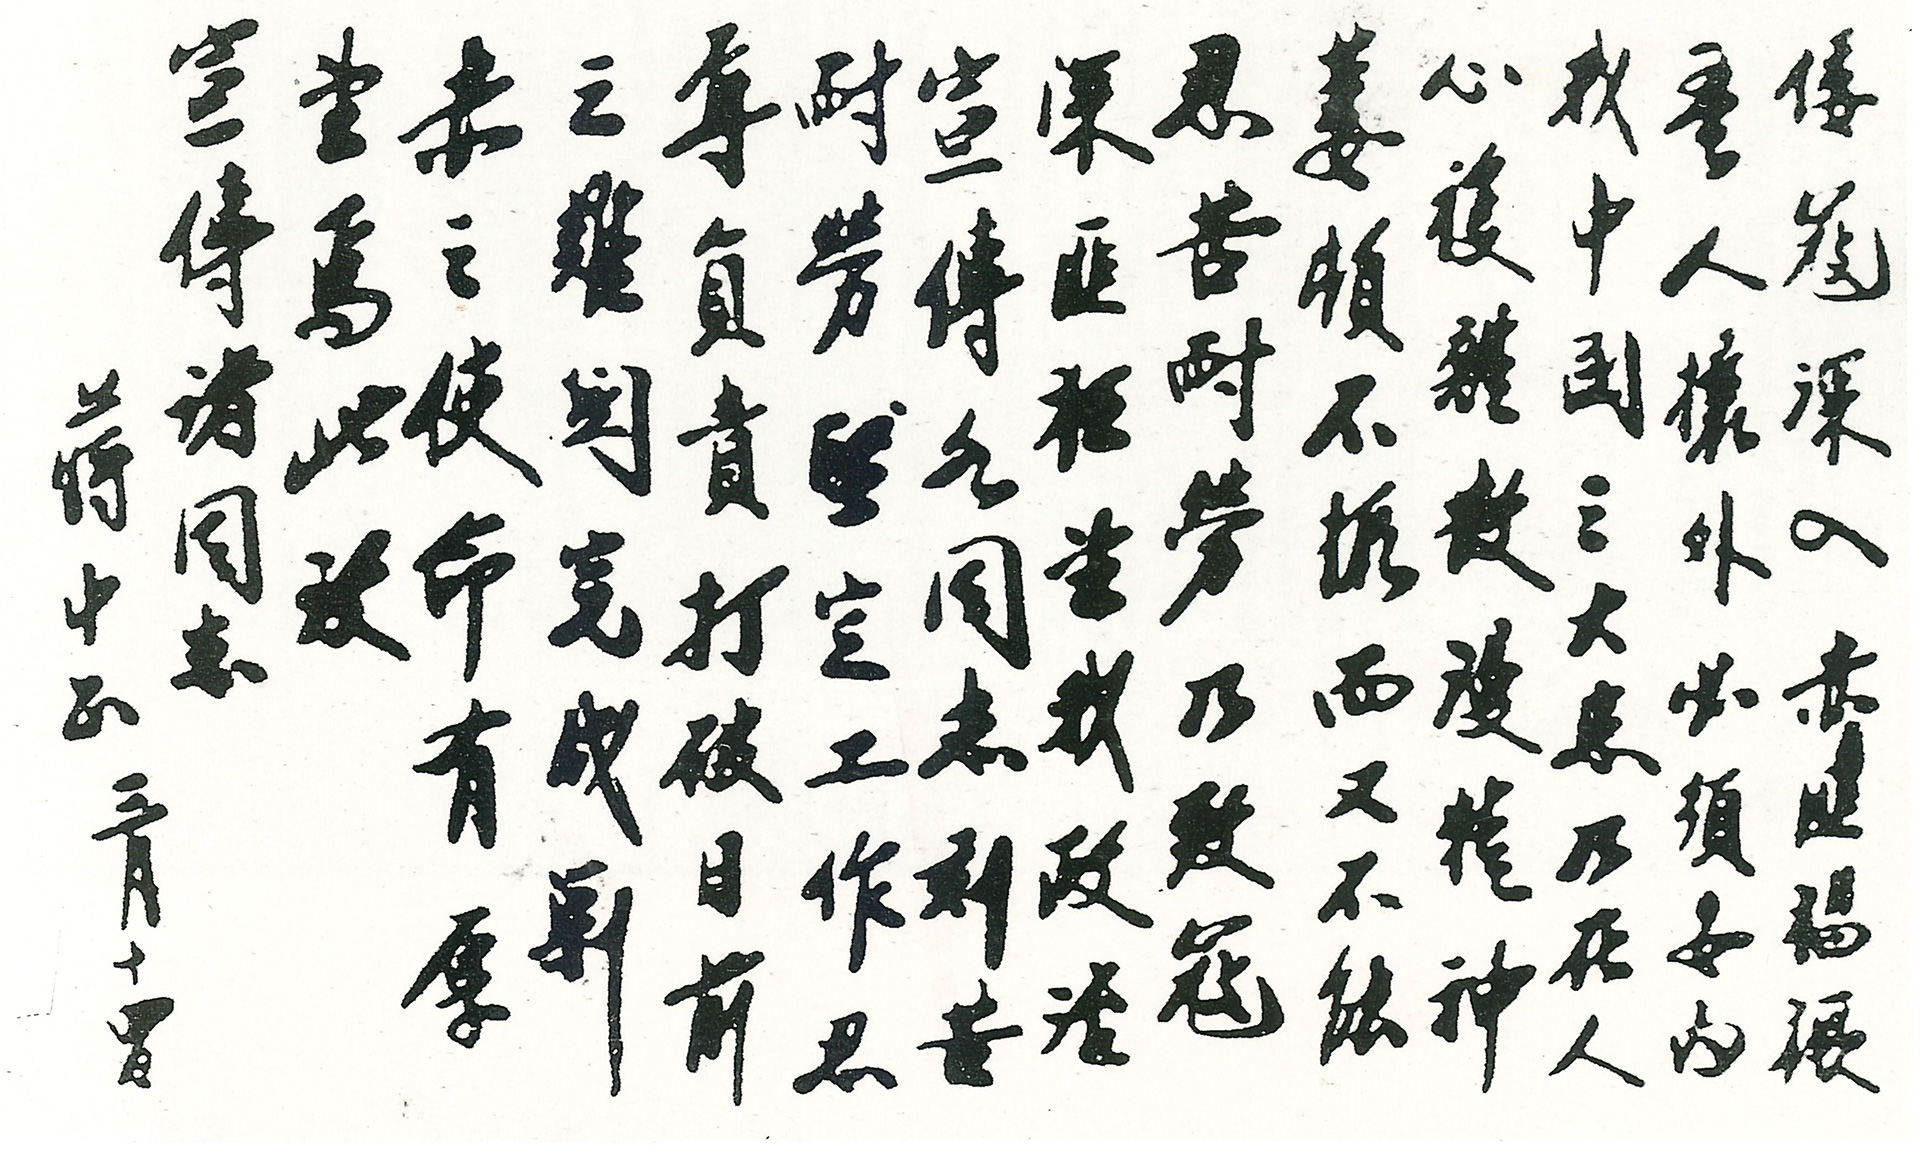 倭寇深入赤匪猖獗
吾人攘外必須安内
我中國之大患乃在人
心複雜散漫精神
萎頓不振而又不能
忍苦耐勞乃致寇
深匪狂望我政治
宣傳各同志刻苦
耐勞堅定工作忍
辱負責打破目前
之難關完成剿
赤之使命有厚
望焉此致
宣傳諸同志
蔣中正 三月十四日